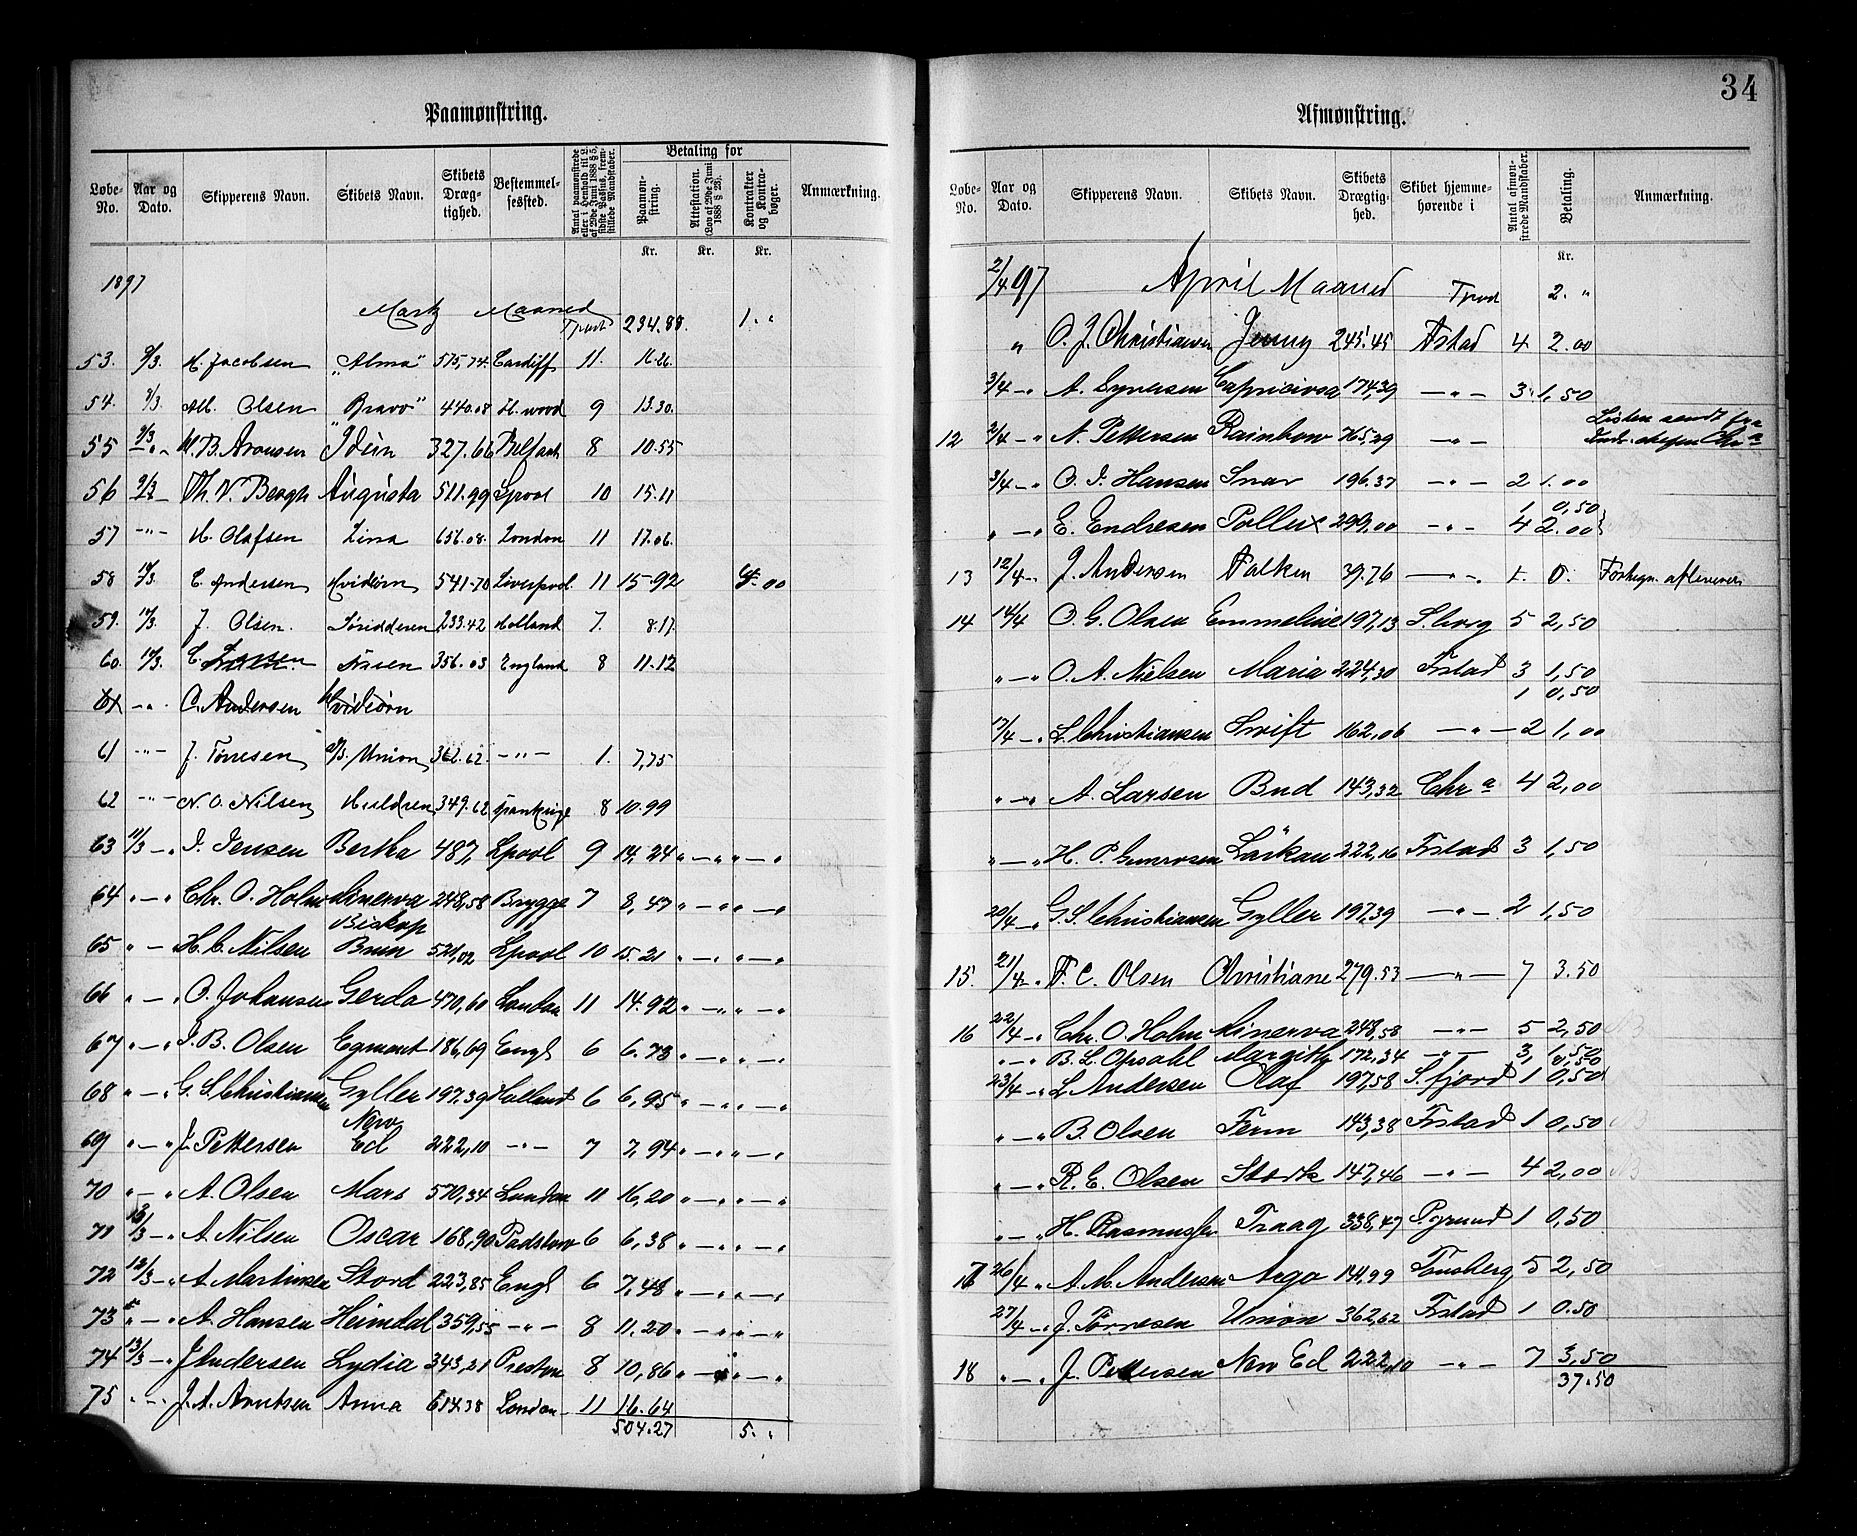 Paamønstring.
Løbe-No. Aar og Dato. Skipperens Navn. Skibets Navn. Skibets Dræg-tighed. Bestemmel-sessted. Antal paamønstrede eller i Henhold til L. af 29de Juni 1888 § 5, sidste Passus, frem-stillede Mandskaber. Betaling for Paamøn-string. Attestation. (Lov af 29de Juni 1888 § 23). Kontrakter og Kontra-bøger. Anmærkning.
Kr. Kr. Kr.
1897
Marts Maaned
Tport 234.88. 1. "
53. 9/3. M. Jacobsen "Alma" 575,74. Cardiff 11. 16.26.
54. 9/3. Alb. Olsen "Bravo" 440.08 H.wood 9 13.30.
55 9/3 - " M. B. Aronsen Idun 327.66 Belfast 8 10.55
56 9/3 - Th. V. Bergh Augusta 511.99 Lpool 10 15.11
57 - " - M. Olafsen Lina 656.08. London 11 17.06.
58 10/3. C. Andersen Hvidörn 541.70 Liverpool 11 15.92 4.00
59. 10/3. J. Olsen. Söridderen 233.42 Holland 7. 8.17.
60. 10/3. C. Larsen Näsen 356.03 England 8 11.12
61 - " C. Andersen Hvidörn
61 - " - J. Törresen D/S. Union 362.62. - " - 1. 7,75
62 - " - N. O. Nilsen Huldren 349.62 8 10.99
63 11/3 - " I. Jensen Bertha 487, Lpool 9 14,24 " - " " - "
64 " - " Chr. O. Holm Minerva 248,58 Brygge 7 8,47 " - " " - "
65 " - " H. C. Nilsen Biskop Brun 521,02 Lpool 10 15.21 " - " " - "
66 " - " O. Johansen Gerda 470,60 London 11 14.92 " - " " - "
67 " - " I. B. Olsen Egmont 186,69 Engl 6 6.73 " - " " - "
68 " - " G. S. Christiansen Gyller 197.39 Holland 6 6,95 " - " " - "
69 " - " J. Pettersen New Ed 222,10 - " - 7 7,94 " - " " - "
70 " - " A. Olsen Mars 570,34 London 11 16,20 " - " " - "
71 13/3 - " A. Nilsen Oscar 168,90 Padstow 6 6,38 " - " " - "
72 12/3 - " A. Martinsen Stord 223,85 Engl 6 7,48 " - " " - "
73 " - " A. Hansen Heimdal 359,55 - " - 8 11.20 " - " " - "
74 13/3 - " J. Andersen Lydia 343,21 Preston 8 10,86 " - " " - "
75 " - " J. A. Arntsen Anna 614.38 London 11 16.64
504.27 5. "
34
Afmønstring.
Løbe-No. Aar og Dato. Skipperens Navn. Skibets Navn. Skibets Drægtig-hed. Skibet hjemme-hørende i Antal afmøn-strede Mandskaber. Betaling. Anmærkning.
Kr.
2/4 97 April Maaned Tport 2. "
" O. J. Christiansen Jenny 245.45 Fstad 4 2.00
3/4 - " A. Syversen Capriciosa 174,39 - " - 3 1,50
12 2/4 - " N. Pettersen Rainbow 765,29 - " - Listen sendt fra
3/4 - " O. I. Hansen Snar 196.37 - " - 2 1.00
1 0,50
" - " E. Endresen Pollux 299,00 - " - 4 2.00
13 12/4 - " J. Andersen Falken 39.76 - " - 1. 0.
14 14/4 O. G. Olsen Emmeline 197,13 S.borg 5 2,50
" - " O. A. Nielsen Maria 224,30 Fstad 3 1,50
1 0,50
17/4 - " L. Christiansen Swift 162,06 - " - 2 1,00
" - " A. Larsen Bud 143,32 Chr a 4 2,00
" - " H. P. Läskau 222,16 Fstad 3 1,50
20/4 - " G. S. Christiansen Gyller 197,39 - " - 2 1,50
15. 21/4 - " F. C. Olsen Christiane 279.53 - " - 7 3.50
16 22/4 - " Chr. O. Holm Minerva 248,58 - " - 5 2,50
" - " B. L. Opsahl Margith 172,34 - " - 3, 1,50
0,50
23/4 - " L. Andersen Olaf 197,58 S.fjord 1 0,50
" - " B. Olsen Ferm 143,38 Fstad 1 0,50
" - " R. E. Olsen Stork 147,46 - " - 4 2,00
" - " H. Rasmussen Traag 338,47 P.grund 1 0,50
17 26/4 " A. M. Andersen Argo 141,99 Tönsberg 5 2,50
27/4 - " J. Törresen Union 362,62 Fstad 1 0.50
18 " - " J. Pettersen New Ed 222,10 - " - 7 3,50
37.50